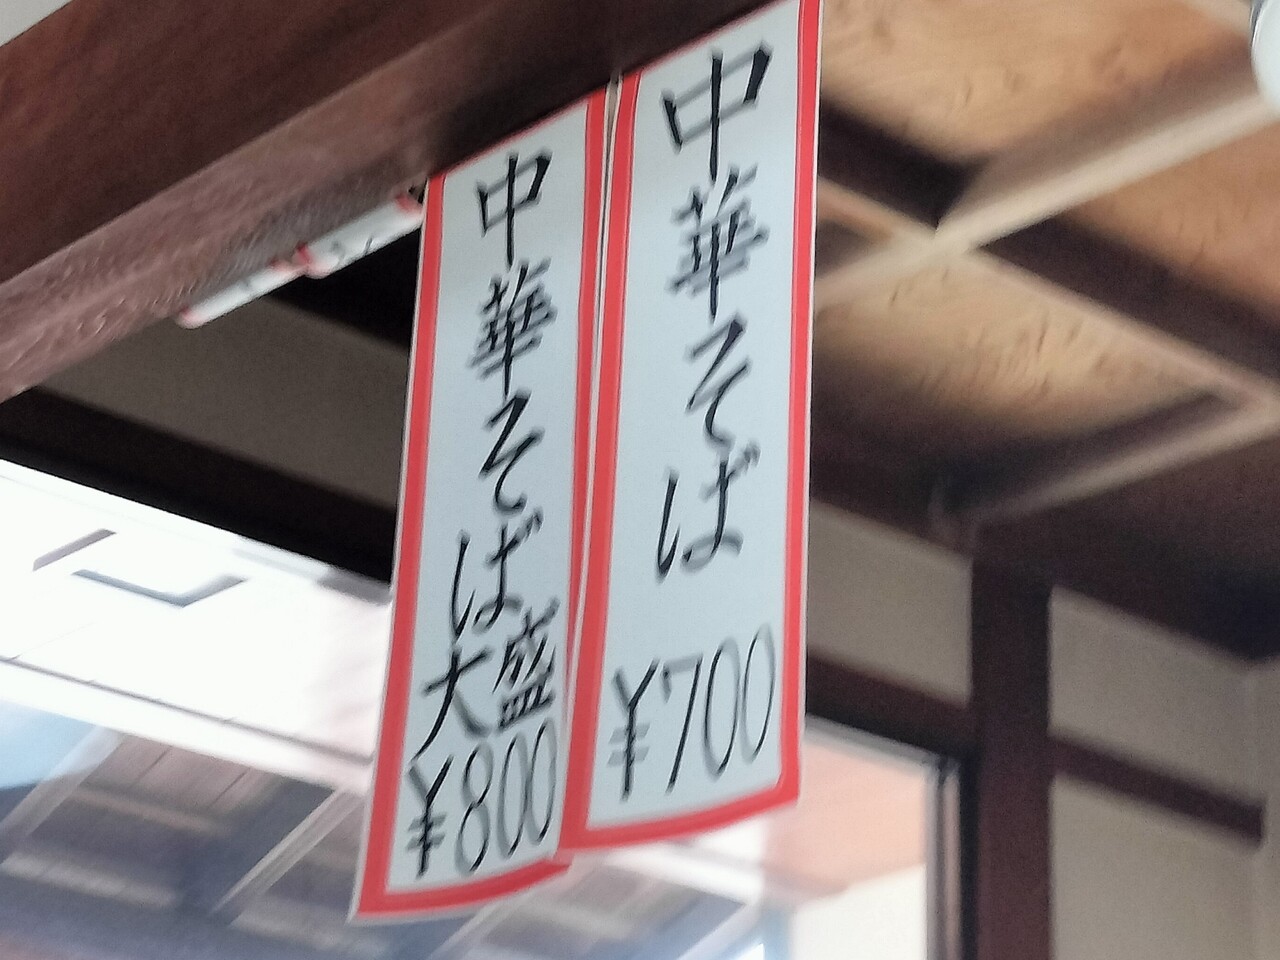 中華そば
¥700
中華そば
大盛
¥800